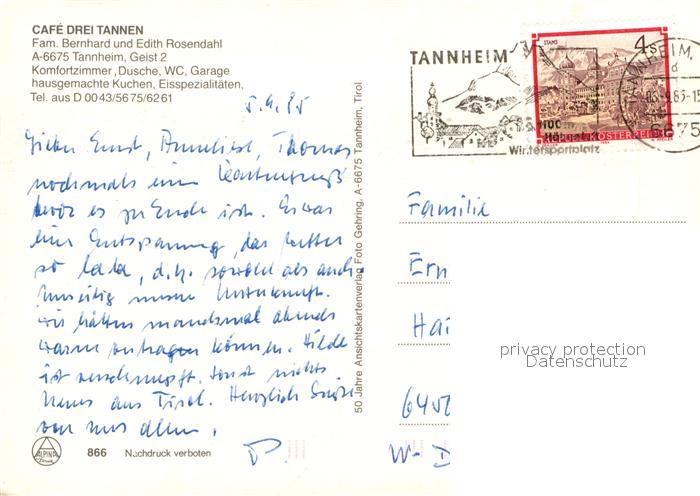 CAFÉ DREI TANNEN
Fam. Bernhard und Edith Rosendahl
A-6675 Tannheim, Geist 2
Komfortzimmer, Dusche, WC, Garage
hausgemachte Kuchen, Eisspezialitäten,
Tel. aus D 0043/5675/6261
5.9.85
Lieber Ernst, Anneliese, Thomas
nochmals ein
bevor es zu Ende ist. Es war
eine Entspannung, das Wetter
so lala, d.h. sowohl als auch.
unsere Unterkunft.
wir hätten manchmal abends
warm vertragen können. Hilde
ist verschnupft. Sonst nichts
Neues aus Tirol. Herzlich Grüße
von uns allen.
P.
866 Nachdruck verboten
ALPINA
50 Jahre Ansichtskartenverlag Foto Gehring, A-6675 Tannheim, Tirol
TANNHEIM
1100 m
Wintersportplatz
STAMS
4 S
REPUBLIK ÖSTERREICH
TANNHEIM,
d
.9.85-15
6675
Familie
Ern
Hai
645
W-D
privacy protection
Datenschutz